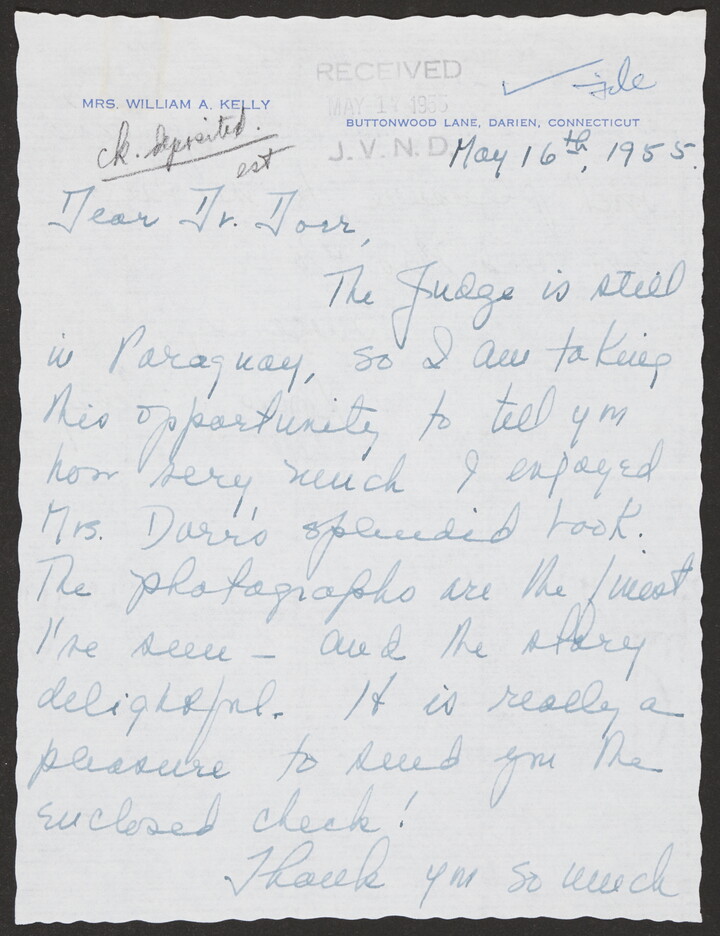 RECEIVED
MAY 17 1955
J. V. N. D.
✓ file
MRS. WILLIAM A. KELLY
BUTTONWOOD LANE, DARIEN, CONNECTICUT
ck. deposited.
est
May 16th, 1955.
Dear Dr. Dorr,
The Judge is still
in Paraguay, so I am taking
this opportunity to tell you
how very much I enjoyed
Mrs. Dorr's splendid book.
The photographs are the finest
I've seen – and the story
delightful. It is really a
pleasure to send you the
enclosed check!
Thank you so much